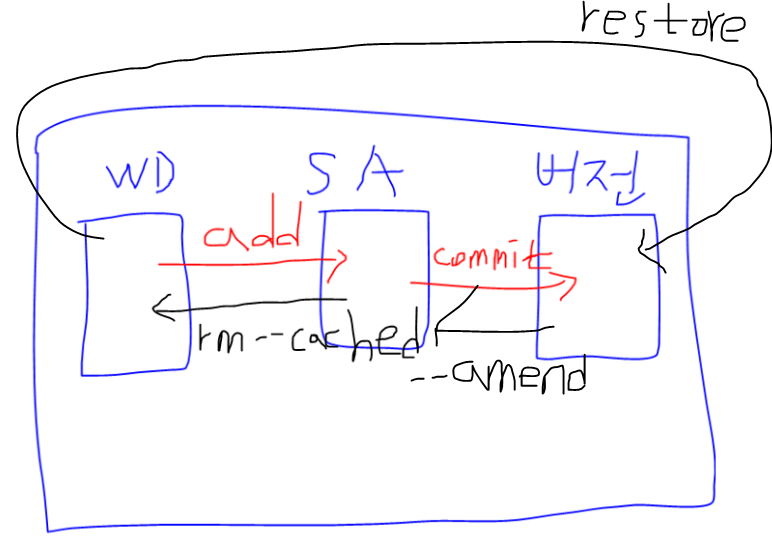 restore
WD SA 버전
add
commit
rm --cached
--amend